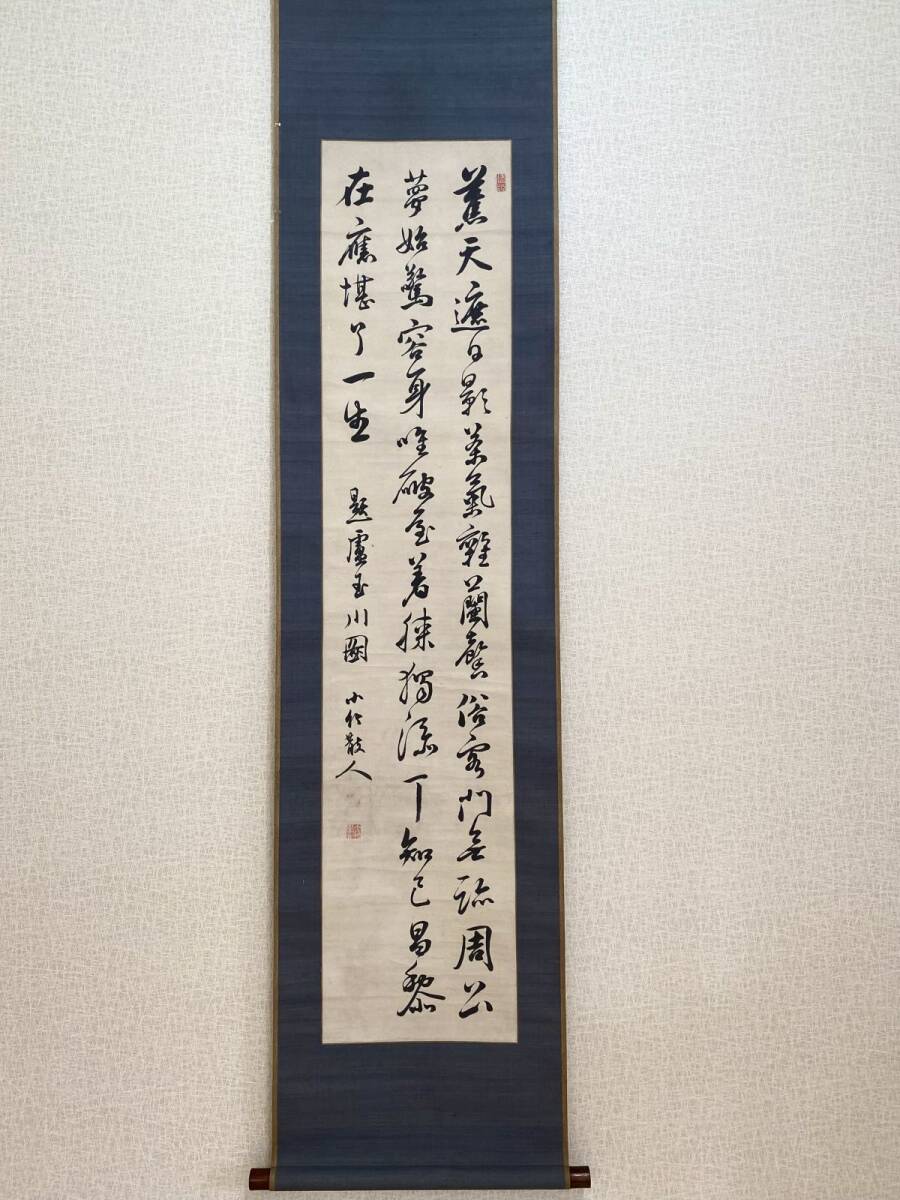 蕉天遮日影茶氣雜蘭馨俗客門無跡周公
夢始驚容身唯破屋着膝獨添丁知己昌黎
在應堪了一生 題盧玉川圖 小竹散人